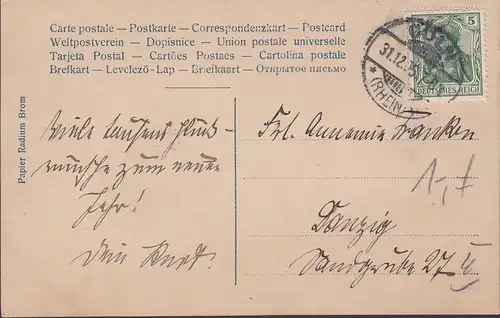 Carte postale — Postkarte — Correspondenzkart — Postcard
Weltpostverein — Dopisnice — Union postale universelle
Tarjeta Postal — Cartões Postaes — Cartolina postale
Brefkort — Levelező-Lap — Briefkaart — Открытое письмо
5
DEUTSCHES REICH
31.12.
(RHEIN)
Papier Radium Brom
Viele tausend Glück-
wünsche zum neuen
Jahr!
Dein
Frl. Annemie Franken
Danzig
Sandgrube 27
1,-